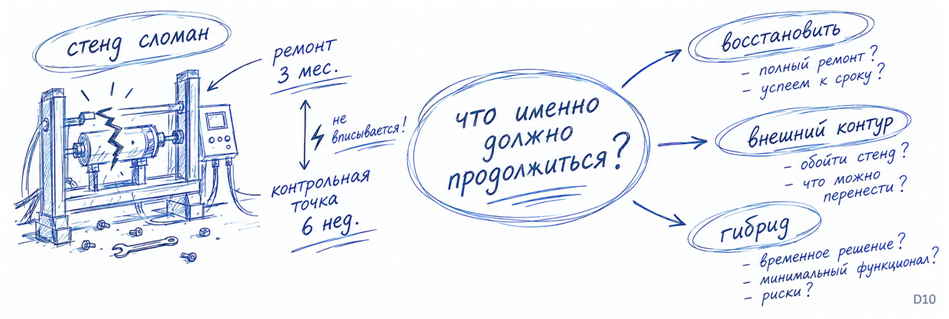 стенд сломан
ремонт
3 мес.
не
вписывается!
контрольная
точка
6 нед.
что именно
должно
продолжиться?
восстановить
– полный ремонт?
– успеем к сроку?
внешний контур
– обойти стенд?
– что можно
перенести?
гибрид
– временное решение?
– минимальный функционал?
– риски?
D10